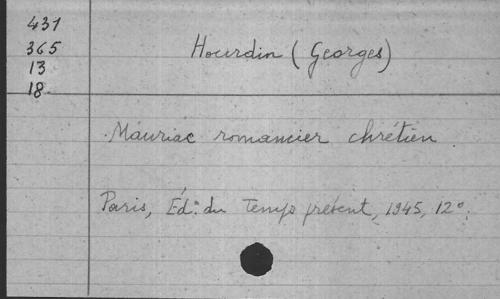 431
365
13
18
Hourdin (Georges)
Mauriac romancier chrétien
Paris, Éd. du Temps présent, 1945, 12°.